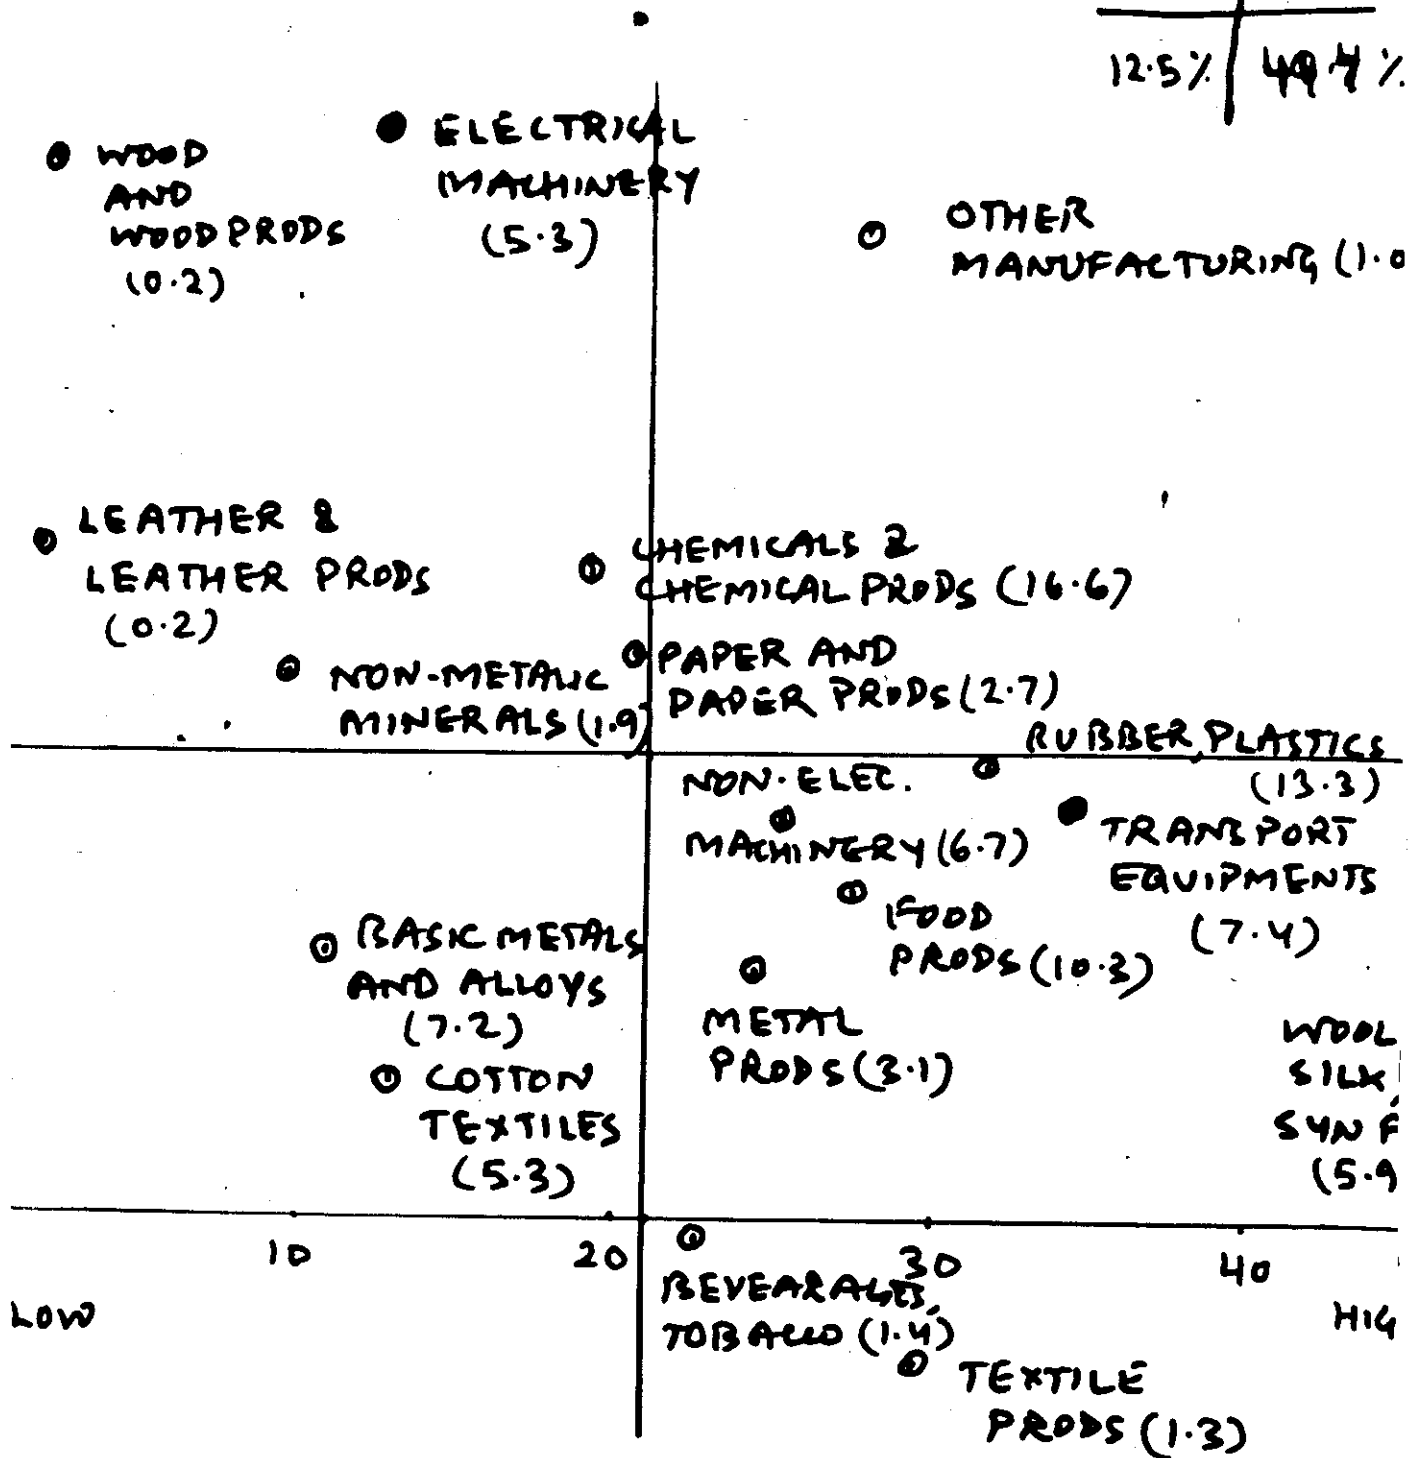 12.5%
WOOD
AND
WOOD PRODS
(0.2)
ELECTRICAL
MACHINERY
(5.3)
OTHER
MANUFACTURING (1.0
LEATHER &
LEATHER PRODS
(0.2)
CHEMICALS &
CHEMICAL PRODS (16.6)
NON-METALIC
MINERALS (1.9)
PAPER AND
PAPER PRODS (2.7)
RUBBER, PLASTICS
(13.3)
NON-ELEC.
MACHINERY (6.7)
TRANSPORT
EQUIPMENTS
(7.4)
FOOD
PRODS (10.3)
BASIC METALS
AND ALLOYS
(7.2)
METAL
PRODS (3.1)
WOOL
SILK,
SYN F
(5.9
COTTON
TEXTILES
(5.3)
10 20 30 40
LOW HIG
BEVEARAGES,
TOBACCO (1.4)
TEXTILE
PRODS (1.3)